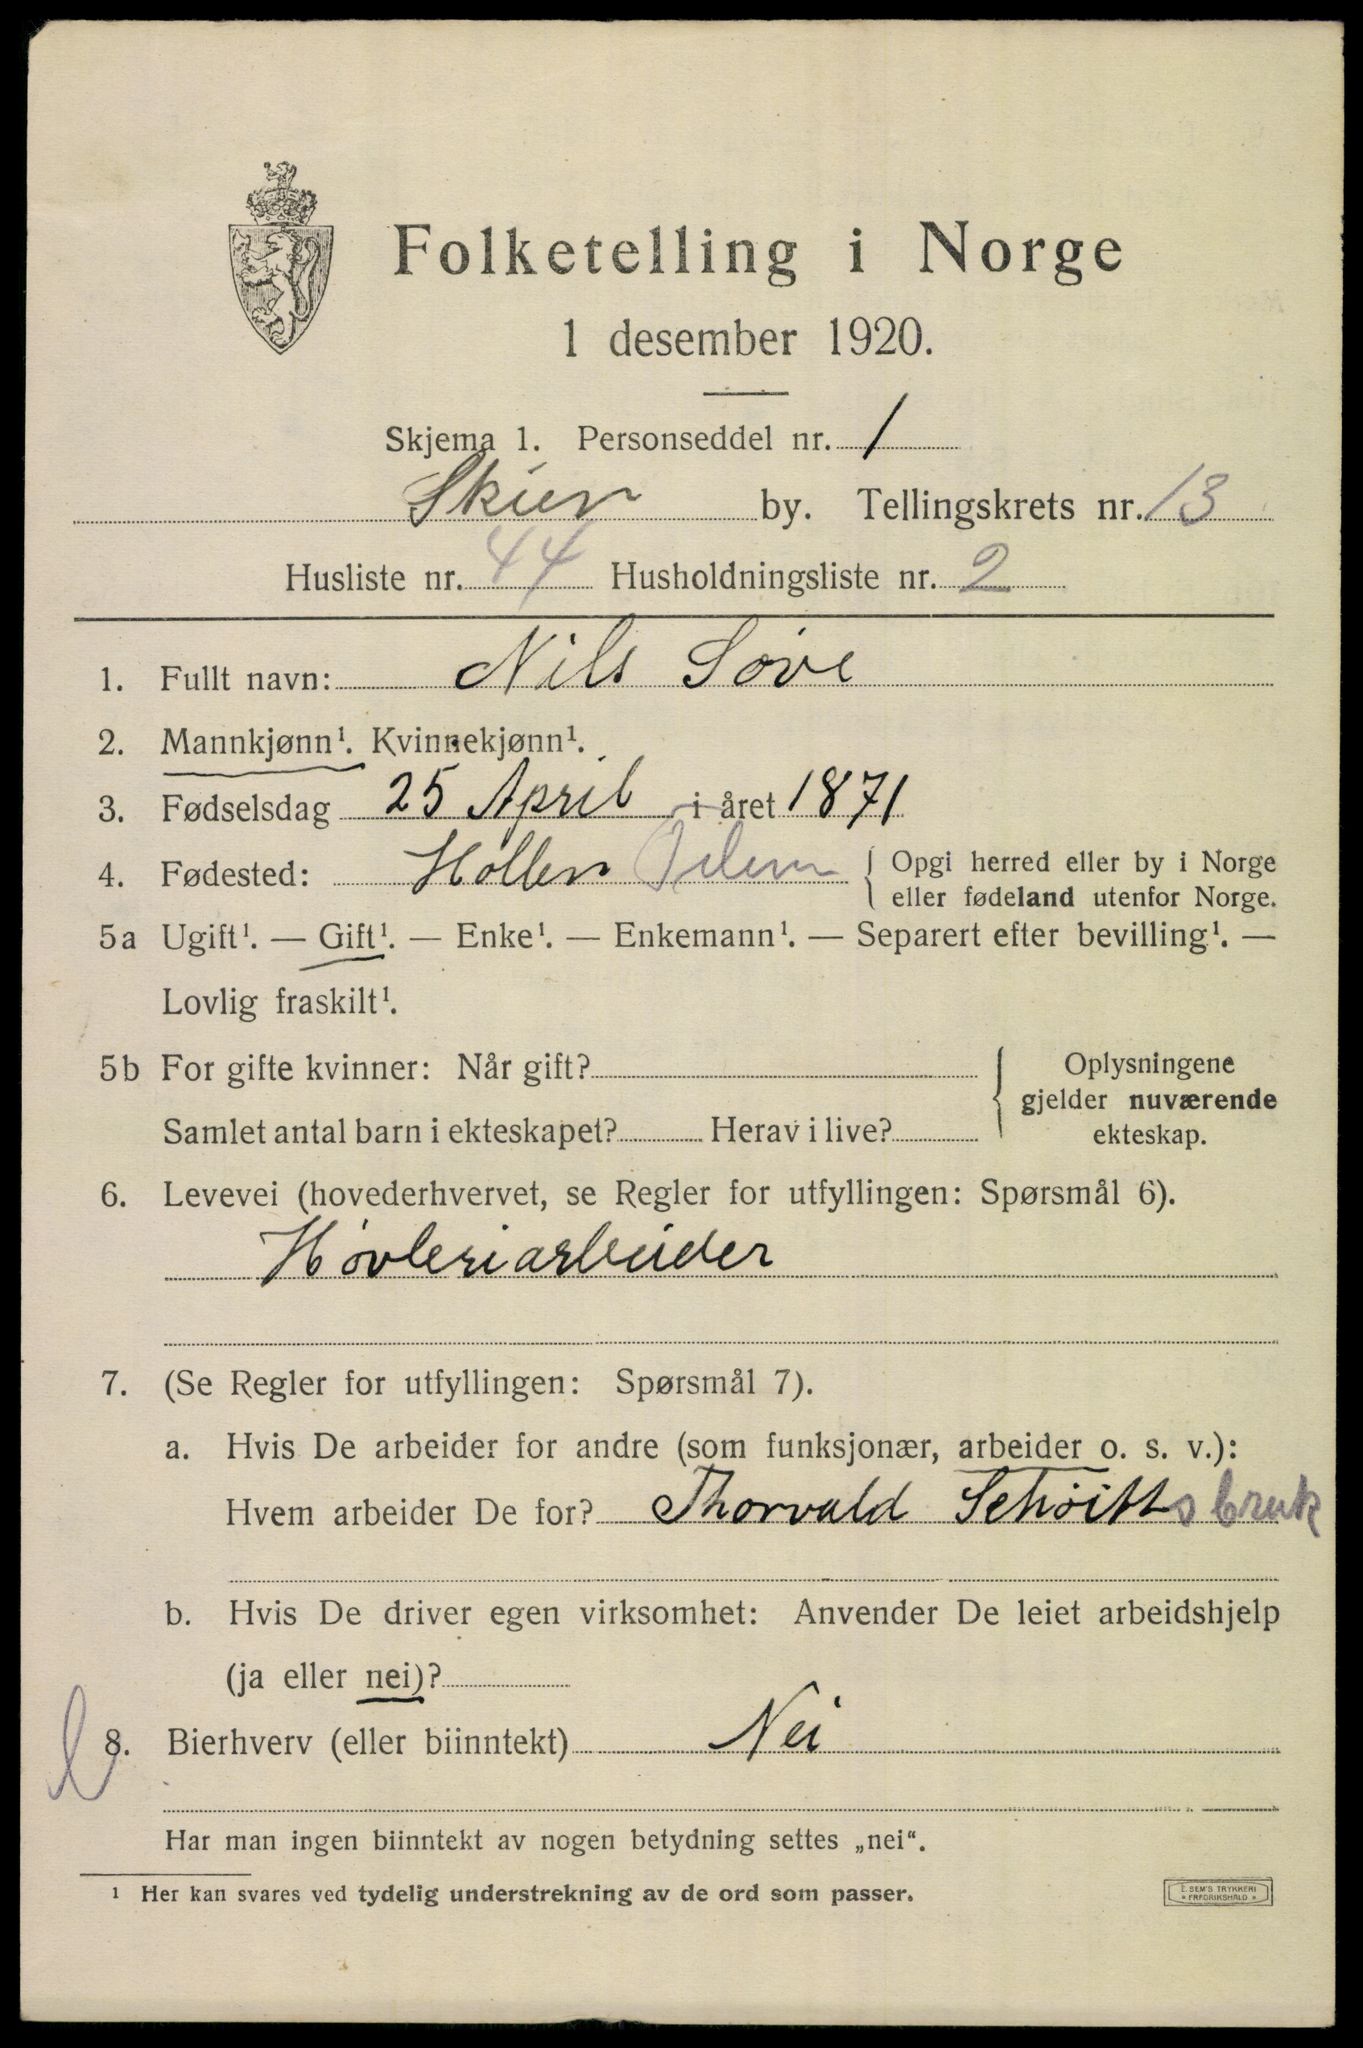 Folketelling i Norge
1 desember 1920.
Skjema 1. Personseddel nr. 1
Skien by. Tellingskrets nr. 13
Husliste nr. 44 Husholdningsliste nr. 2
1. Fullt navn: Nils Søve
2. Mannkjønn¹. Kvinnekjønn¹.
3. Fødselsdag 25 April i året 1871
4. Fødested: Hollen Telem { Opgi herred eller by i Norge
eller fødeland utenfor Norge.
5a Ugift¹. — Gift¹. — Enke¹. — Enkemann¹. — Separert efter bevilling¹. —
Lovlig fraskilt¹.
5b For gifte kvinner: Når gift? { Oplysningene
gjelder nuværende
Samlet antal barn i ekteskapet? Herav i live? ekteskap.
6. Levevei (hovederhvervet, se Regler for utfyllingen: Spørsmål 6).
Høvleriarbeider
7. (Se Regler for utfyllingen: Spørsmål 7).
a. Hvis De arbeider for andre (som funksjonær, arbeider o. s. v.):
Hvem arbeider De for? Thorvald Schøitts bruk
b. Hvis De driver egen virksomhet: Anvender De leiet arbeidshjelp
(ja eller nei)?
8. Bierhverv (eller biinntekt) Nei
Har man ingen biinntekt av nogen betydning settes „nei“.
¹ Her kan svares ved tydelig understrekning av de ord som passer.
E. SEM'S TRYKKERI
FREDRIKSHALD